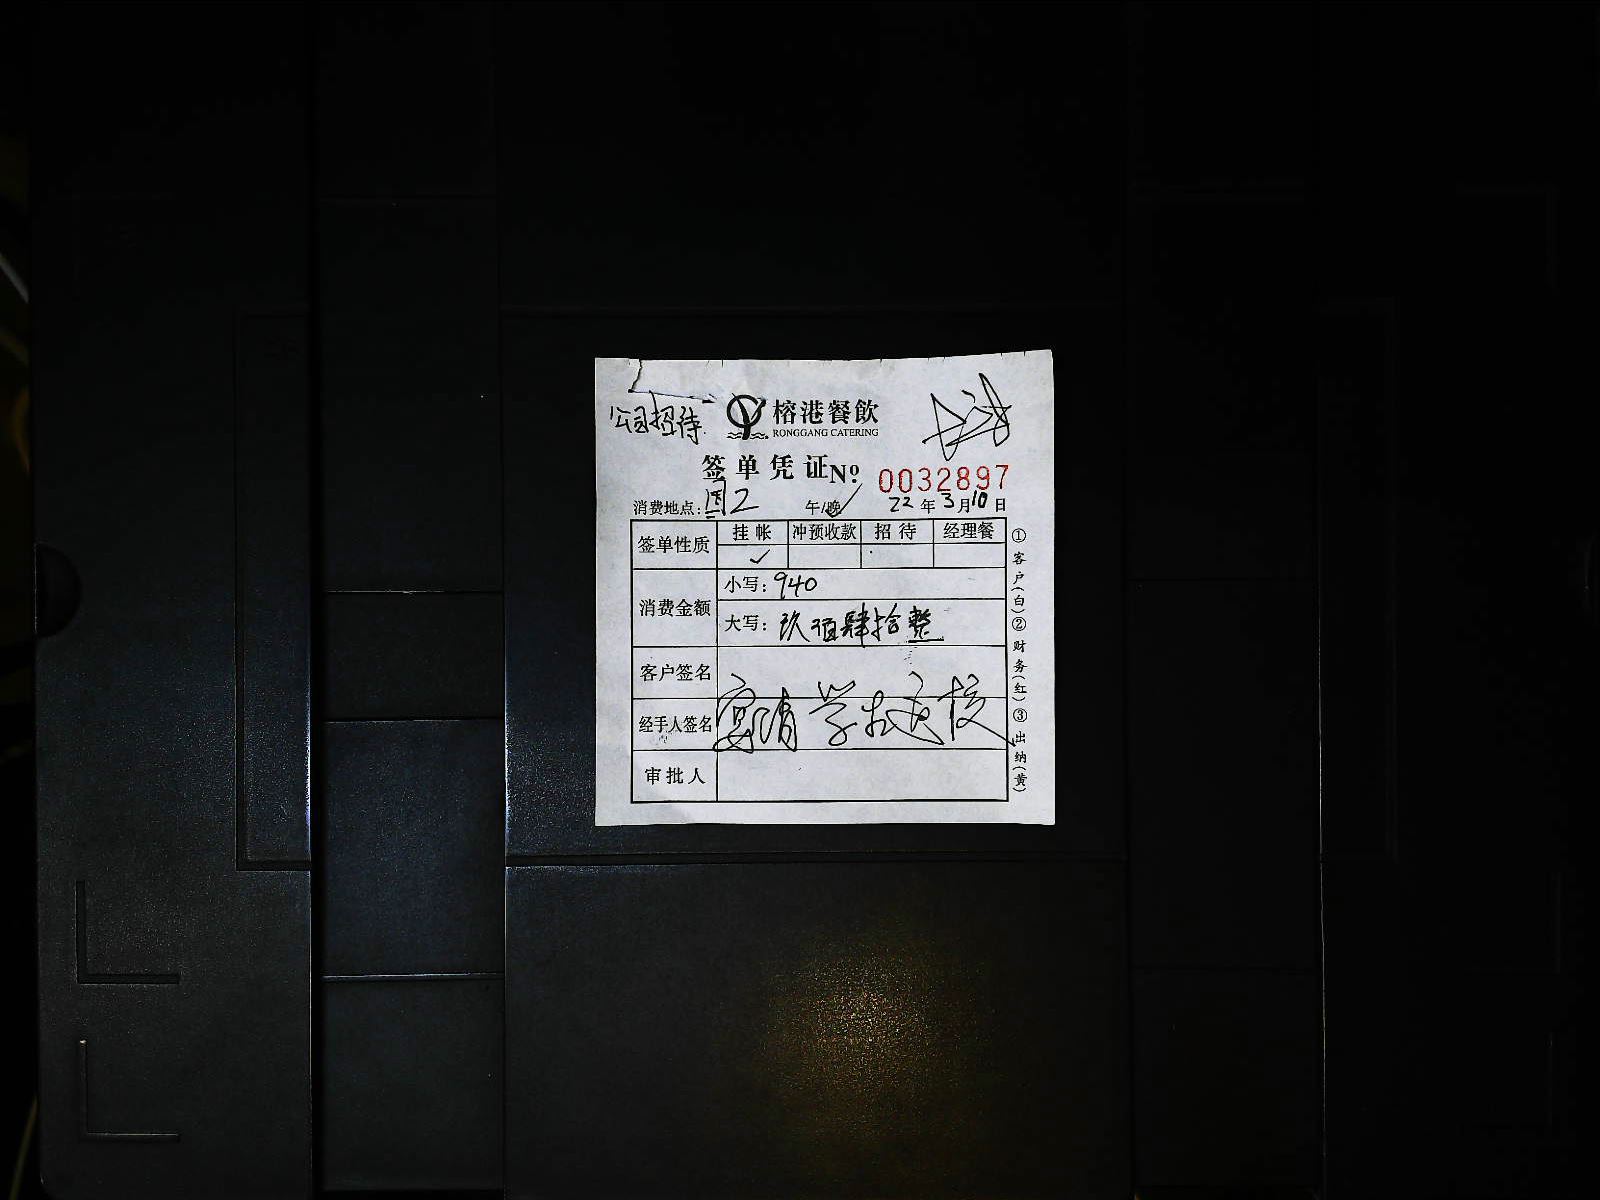 公司招待
榕港餐飲
RONGGANG CATERING
签单凭证 № 0032897
消费地点: 国2 午/晚 22年3月10日
签单性质 挂帐 冲预收款 招待 经理餐
✓
消费金额 小写: 940
大写: 玖佰肆拾整
客户签名
经手人签名 宴请学
审批人
①客户(白)②财务(红)③出纳(黄)